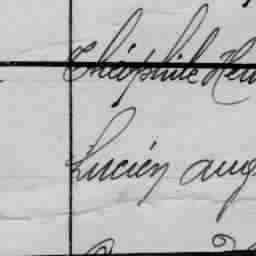 Théophile Hen
Lucien aug